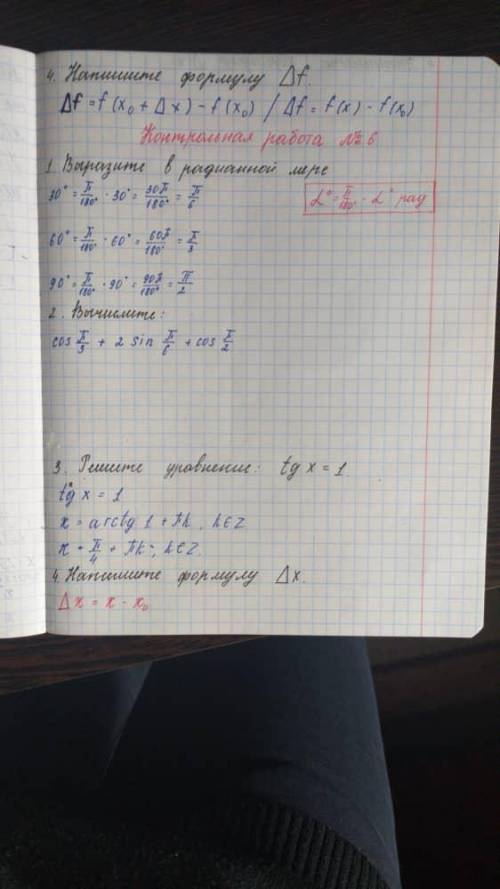 4. Напишите формулу Δf.
Δf = f(x₀ + Δx) - f(x₀) / Δf = f(x) - f(x₀)
Контрольная работа №6
1. Выразите в радианной мере
30° = π/180° · 30° = 30π/180° = π/6
α° = π/180° · α° рад
60° = π/180° · 60° = 60π/180° = π/3
90° = π/180° · 90° = 90π/180° = π/2
2. Вычислите:
cos π/3 + 2 sin π/6 + cos π/2
3. Решите уравнение: tg x = 1
tg x = 1
x = arctg 1 + πk, k∈Z
x = π/4 + πk, k∈Z.
4. Напишите формулу Δx.
Δx = x - x₀